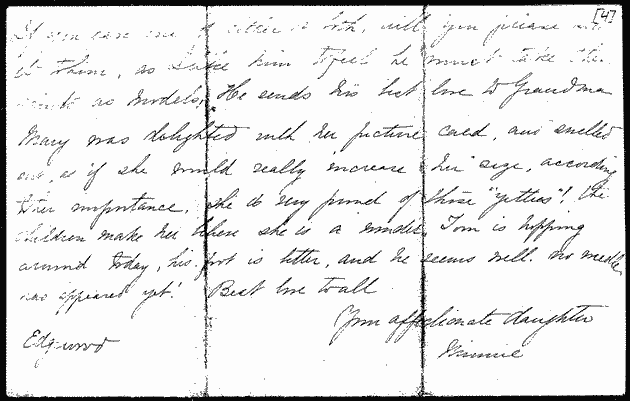 [4]
If you can use either or both, will you please
it to him, as I like him to feel he must take the
as models. He sends his best love to Grandma
Mary was delighted with her picture card, and swelled
out, as if she would really increase her size, according
to her importance. She is very proud of those "getties"! The
children make her believe she is a wonder. Tom is hopping
around today, his foot is better, and he seems well. No needle
has appeared yet! Best love to all
Your affectionate daughter
Edgwood
Minnie